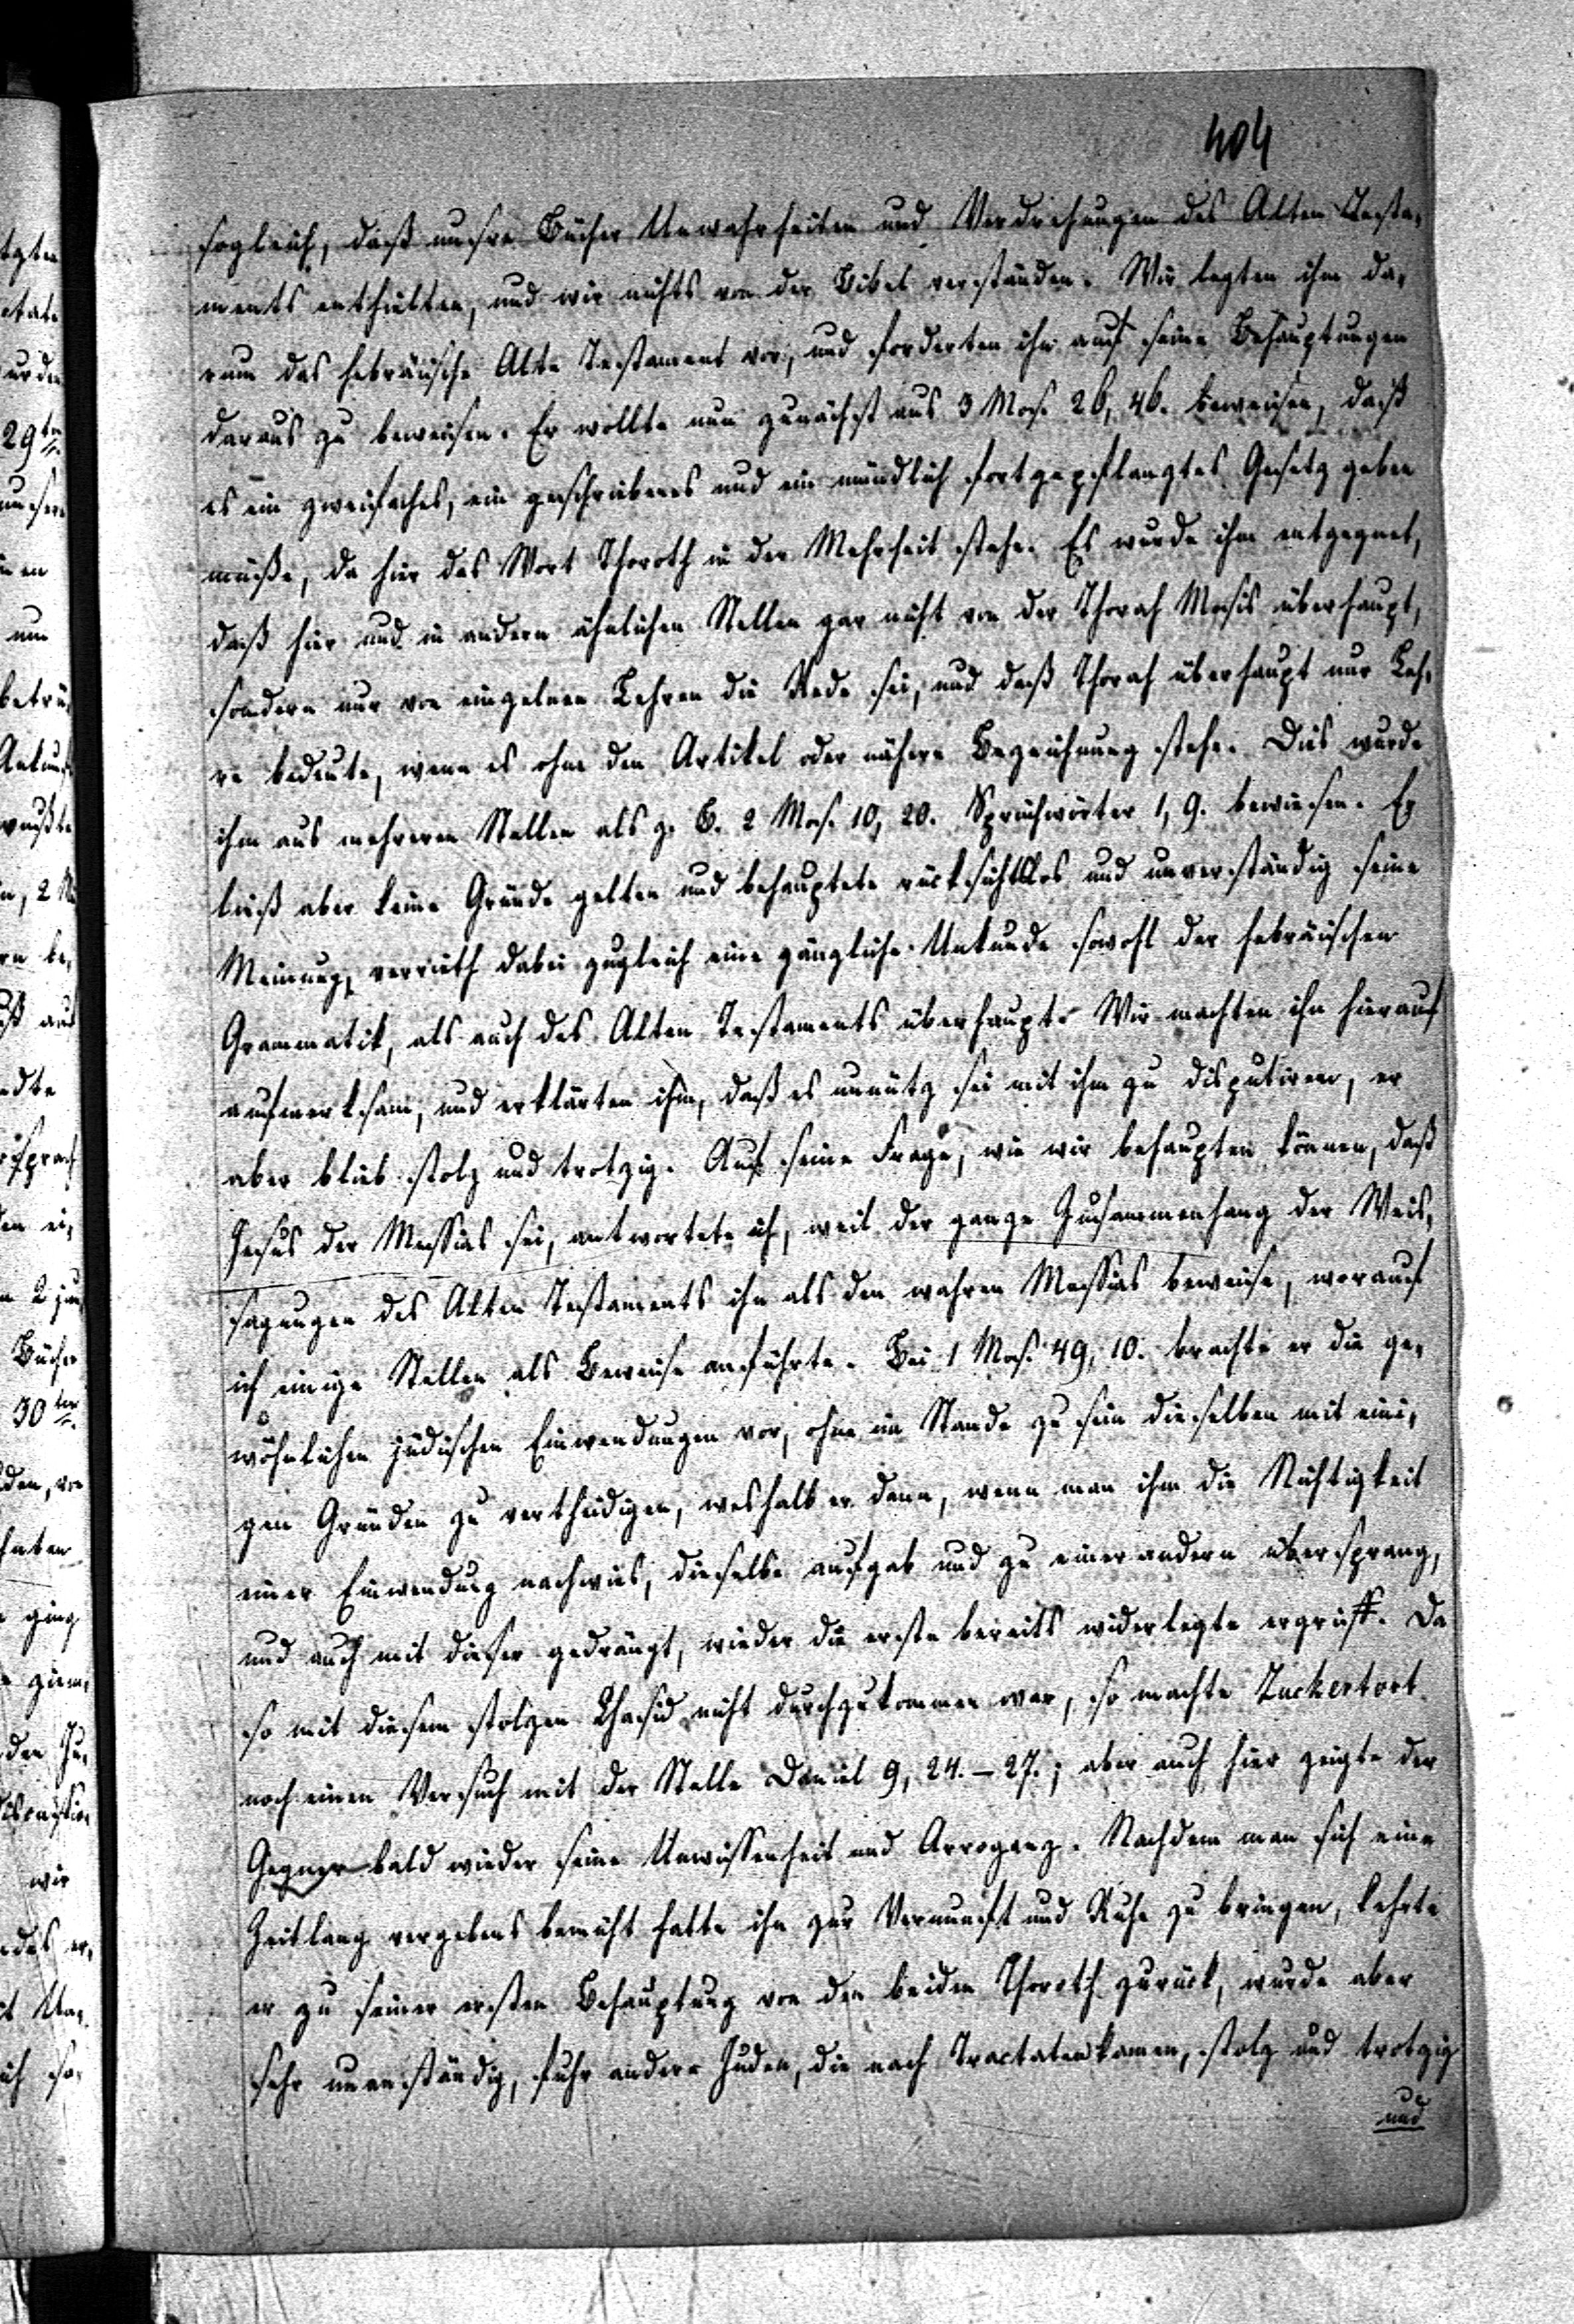 404
sogleich, daß unsre Bücher Unwahrheiten und Verdrehungen des Alten Testa-
ments enthielten, und wir nichts von der Bibel verständen. Wir legten ihm da-
rum das hebräische Alte Testament vor, und forderten ihn auf seine Behauptungen
daraus zu beweisen. Er wollte nun zunächst aus 3 Mos. 26, 46. beweisen, daß
es ein zweifaches, ein geschriebenes und ein mündlich fortgepflanztes Gesetz geben
müße, da hier das Wort Thoroth in der Mehrheit stehe. Es wurde ihm entgegnet,
daß hier und in andern ähnlichen Stellen gar nicht von der Thorah Mosis überhaupt,
sondern nur von einzelnen Lehren die Rede sei, und daß Thorah überhaupt nur Leh-
re bedeute, wenn es ohne den Artikel oder nähere Bezeichnung stehe. Dies wurde
ihm aus mehreren Stellen als z. B. 2 Mos. 10, 20. Sprüchwörter 1, 9. bewiesen. Er
ließ aber keine Gründe gelten und behauptete rücksichtslos und unverständig seine
Meinung, verrieth dabei zugleich eine gänzliche Unkunde sowohl der hebräischen
Grammatik, als auch des Alten Testaments überhaupt. Wir machten ihn hierauf
aufmerksam, und erklärten ihm, daß es unnütz sei mit ihm zu disputiren, er
aber blieb stolz und trotzig. Auf seine Frage, wie wir behaupten können, daß
Jesus der Messias sei, antwortete ich, weil der ganze Zusammenhang der Weis-
sagungen des Alten Testaments ihn als den wahren Messias beweise, worauf
ich einige Stellen als Beweise anführte. Bei 1 Mos. 49, 10. brachte er die ge-
wöhnlichen jüdischen Einwendungen vor, ohne im Stande zu sein dieselben mit eini-
gen Gründen zu vertheidigen, weshalb er dann, wenn man ihm die Nichtigkeit
einer Einwendung nachwies, dieselbe aufgab und zu einer andern übersprang,
und auch mit dieser gedrängt, wieder die erste bereits widerlegte ergriff. Da
so mit diesem stolzen Chasid nicht durchzukommen war, so machte Zuckertort
noch einen Versuch mit der Stelle Daniel 9, 24.–27.; aber auch hier zeigte der
Gegner bald wieder seine Unwissenheit und Arroganz. Nachdem man sich eine
Zeitlang vergebens bemüht hatte ihn zur Vernunft und Ruhe zu bringen, kehrte
er zu seiner ersten Behauptung von den beiden Thoroth zurück, wurde aber
sehr unanständig, fuhr andere Juden, die nach Tractaten kamen, stolz und trotzig
und